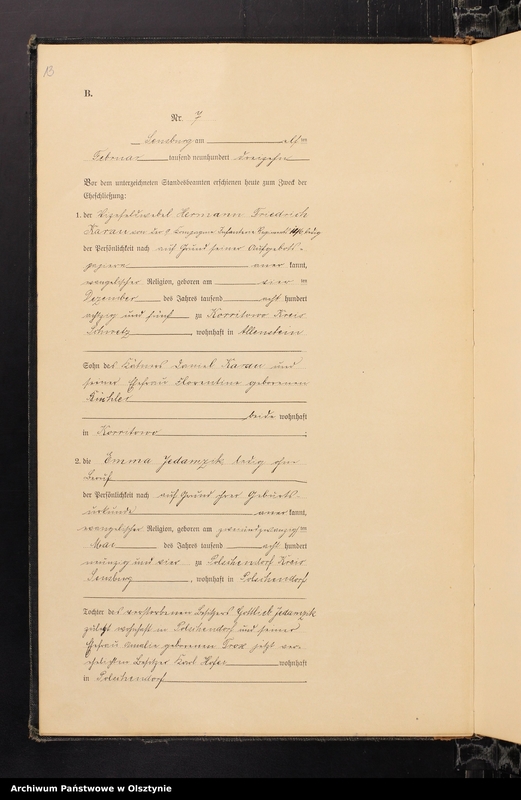 13
B.
Nr. 7
Sensburg am elften
Februar tausend neunhundert dreizehn
Vor dem unterzeichneten Standesbeamten erschienen heute zum Zweck der
Eheschließung:
1. der Vizefeldwebel Hermann Friedrich
Karau von der Compagnie Infanterie Regiment
der Persönlichkeit nach auf Grund seiner Aufgebots-
papiere aner kannt,
evangelischer Religion, geboren am vier ten
Dezember des Jahres tausend acht hundert
achtzig und fünf zu Korritowo Kreis
Schwetz, wohnhaft in Allenstein
Sohn des Käthners Daniel Karau und
seiner Ehefrau Florentine geborenen
beide wohnhaft
in Korritowo.
2. die Emma Jedamzik ledig ohne
Beruf
der Persönlichkeit nach auf Grund ihrer Geburts-
urkunde aner kannt,
evangelischer Religion, geboren am zweiundzwanzigsten
des Jahres tausend acht hundert
neunzig und vier zu Polschendorf Kreis
Sensburg, wohnhaft in Polschendorf
Tochter des verstorbenen Besitzers Gottlieb Jedamzik
zuletzt wohnhaft in Polschendorf und seiner
Ehefrau geborenen jetzt ver-
ehelichten Besitzer Karl wohnhaft
in Polschendorf
Archiwum Państwowe w Olsztynie